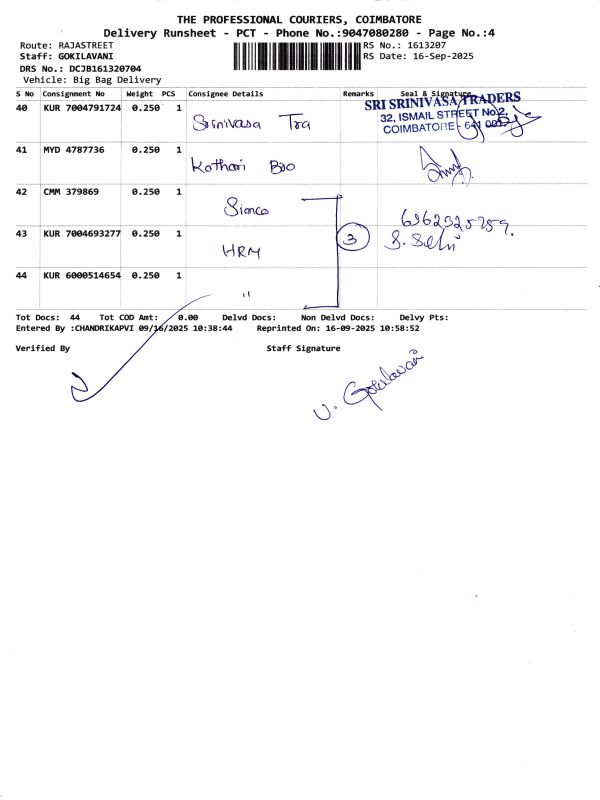 THE PROFESSIONAL COURIERS, COIMBATORE
Delivery Runsheet - PCT - Phone No.:9047080280 - Page No.:4
Route: RAJASTREET
RS No.: 1613207
Staff: GOKILAVANI
RS Date: 16-Sep-2025
DRS No.: DCJB161320704
Vehicle: Big Bag Delivery
S No Consignment No Weight PCS Consignee Details Remarks Seal & Signature
40 KUR 7004791724 0.250 1 Srinivasa Tra
SRI SRINIVASA TRADERS
32, ISMAIL STREET No.2,
COIMBATORE - 641 001.
41 MYD 4787736 0.250 1 Kothari Bro
42 CMM 379869 0.250 1 Simco
43 KUR 7004693277 0.250 1 HRM 3
S. Selvi
44 KUR 6000514654 0.250 1 "
Tot Docs: 44 Tot COD Amt: 0.00 Delvd Docs: Non Delvd Docs: Delvy Pts:
Entered By :CHANDRIKAPVI 09/16/2025 10:38:44 Reprinted On: 16-09-2025 10:58:52
Verified By Staff Signature
V. Gokilavani